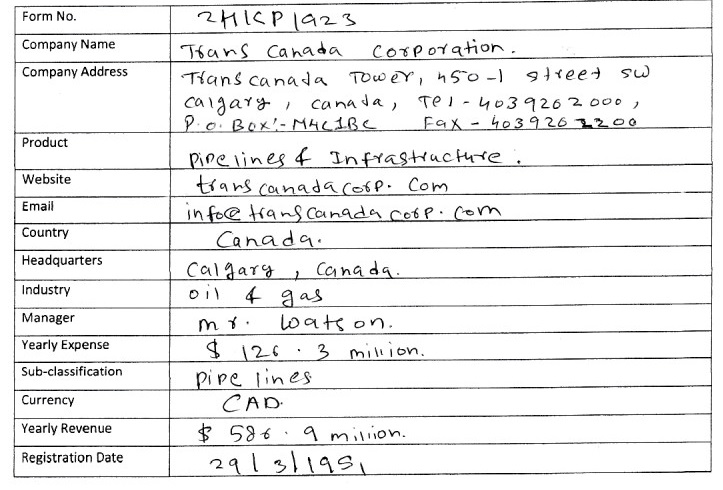 Form No. 2HKP1923
Company Name Trans Canada Corporation.
Company Address Trans canada Tower, 450-1 street sw
calgary, canada, Tel - 4039262000,
P.O. Box:- M4C1BC Fax - 4039262200
Product Pipelines & Infrastructure.
Website trans canada corp. Com
Email info@transcanada corp. com
Country Canada.
Headquarters Calgary, Canada.
Industry oil & gas
Manager mr. Watson.
Yearly Expense $ 126.3 million.
Sub-classification pipe lines
Currency CAD.
Yearly Revenue $ 586.9 million.
Registration Date 29/3/1951